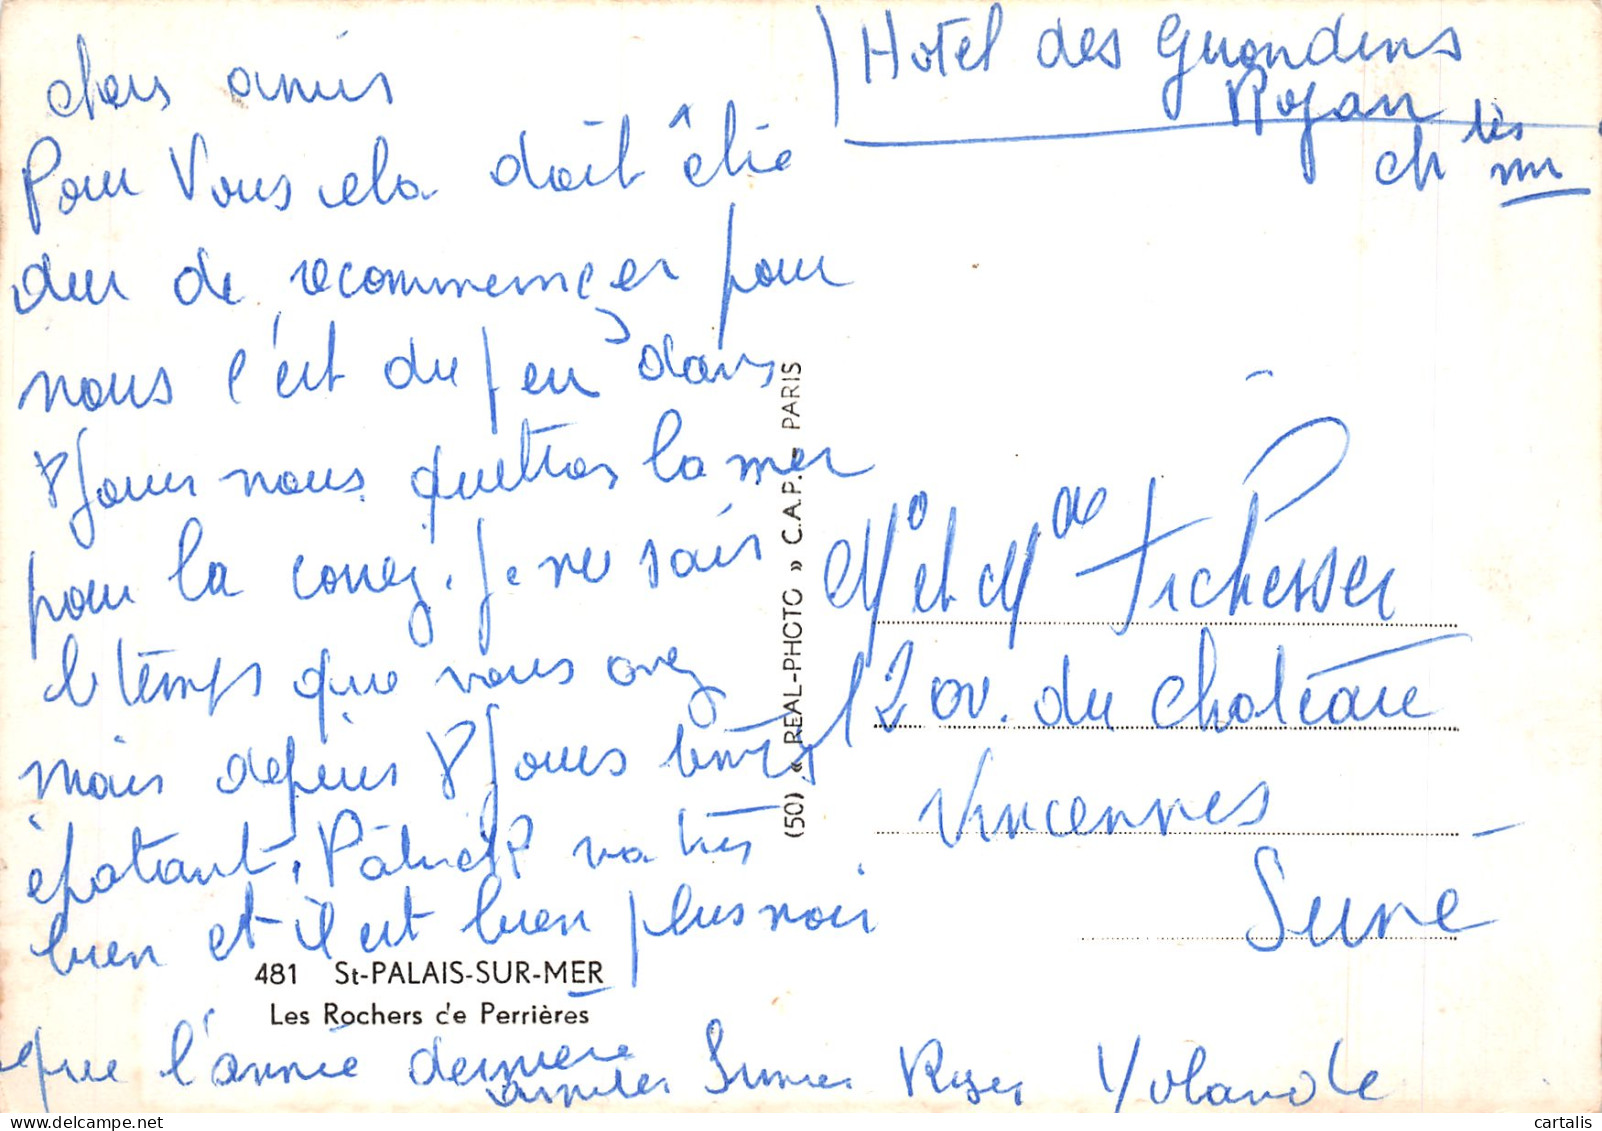 Hotel des Girondins
Royan
Ch
chers amis
Pour Vous cela doit être
dur de recommencer pour
nous c'est du feu dans
8 jours nous quittons la mer
pour la Je ne sais
le temps que vous avez
mais depuis 8 jours temps
épatant, Patrick va très
bien et il est bien plus noir
que l'année dernière
amitiés Roger Yolande
(50) « REAL-PHOTO » C.A.P. - PARIS
Mr et Mme Fichesser
12 av. du Château
Vincennes -
Seine
481 St-PALAIS-SUR-MER
Les Rochers de Perrières
cartalis